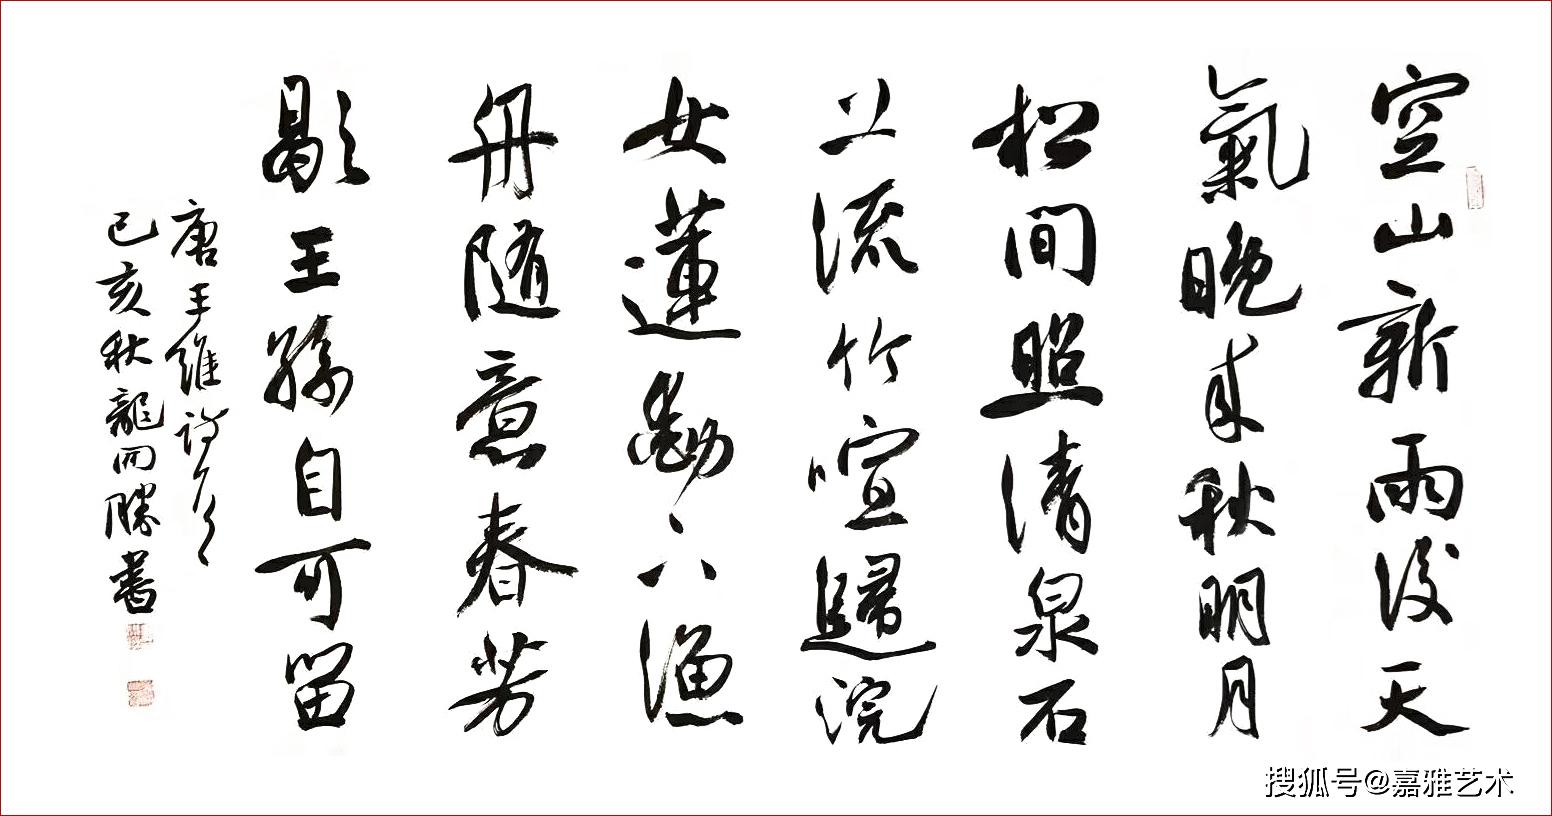 空山新雨後天
氣晚来秋明月
松間照清泉石
上流竹喧歸浣
女蓮動下漁
舟随意春芳
歇王孫自可留
唐王維詩
己亥秋龍勝書
搜狐号@嘉雅艺术